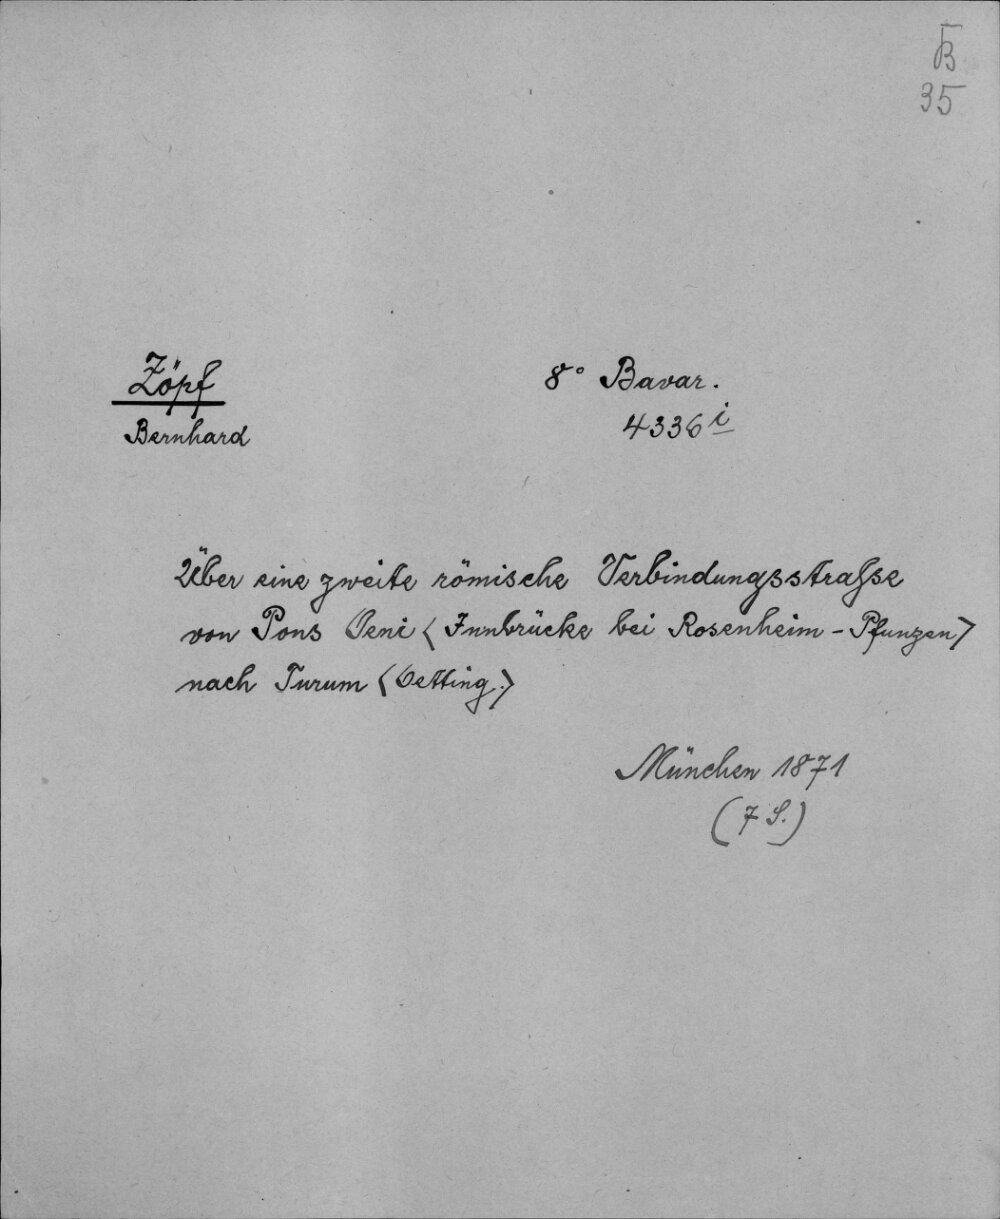 B
35
Zöpf
Bernhard
8° Bavar.
4336 i
Über eine zweite römische Verbindungsstraſse
von Pons Oeni < Innbrücke bei Rosenheim - Pfunzen >
nach Turum < Oetting. >
München 1871
(7 S.)